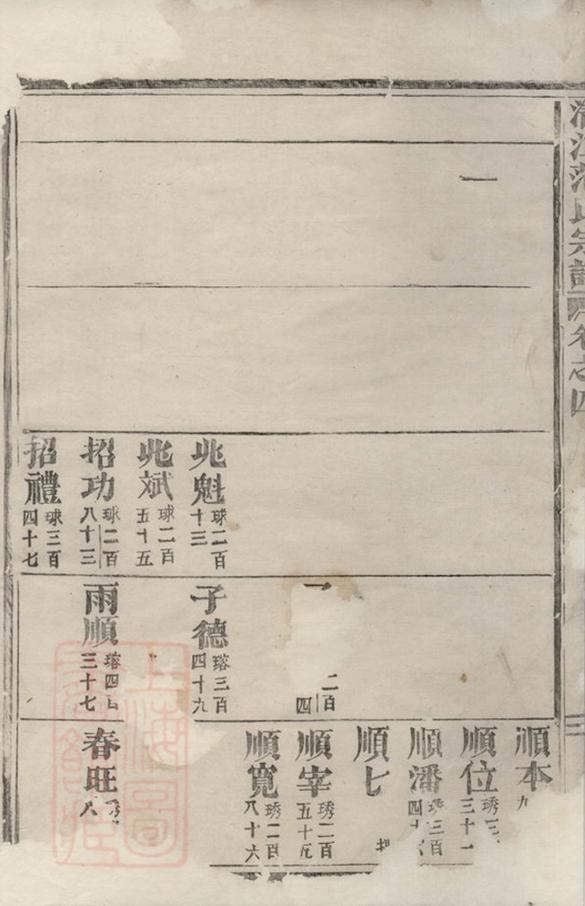 氏宗譜卷之四
一
兆魁 球二百十三
兆斌 球二百五十五
招功 球二百八十三
招禮 球三百四十七
二百四
子德 瑢三百四十九
雨順 瑢四百三十七
順本 九
順位 琇三三十一
順潘 琇三百四十
順七
順宰 琇二百五十五
順寬 琇二百八十六
春旺 琇八
上海圖